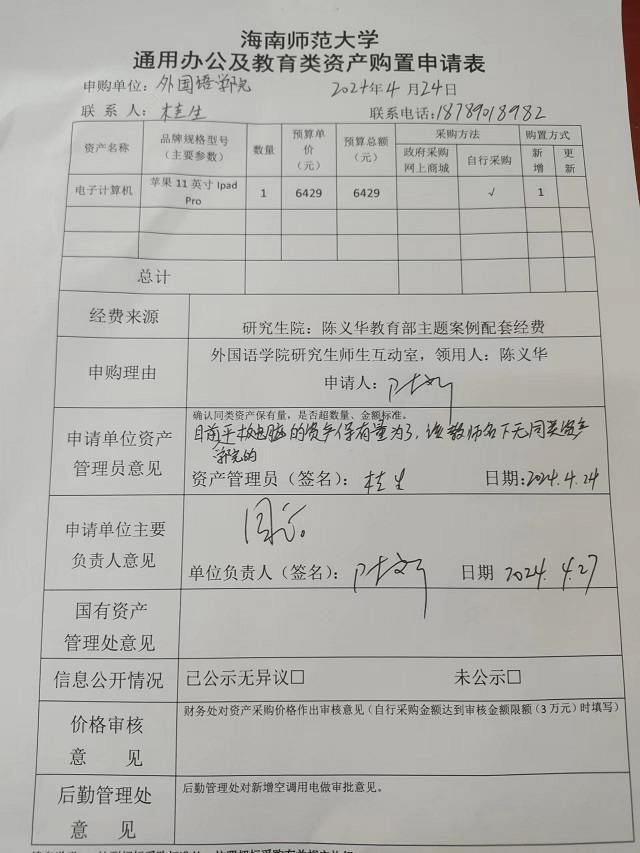 海南师范大学
通用办公及教育类资产购置申请表
申购单位：外国语学院 2024年4月24日
联系人：桂生 联系电话：18789018982
资产名称 品牌规格型号（主要参数） 数量 预算单价（元） 预算总额（元） 采购方法 购置方式
政府采购网上商城 自行采购 新增 更新
电子计算机 苹果 11 英寸 Ipad Pro 1 6429 6429 √ 1
总计
经费来源 研究生院：陈义华教育部主题案例配套经费
申购理由 外国语学院研究生师生互动室，领用人：陈义华
申请人：
申请单位资产管理员意见 确认同类资产保有量，是否超数量、金额标准。
目前平板电脑的资产保有量为3，该教师名下无同类资产
学院的
资产管理员（签名）：桂生 日期：2024.4.24
申请单位主要负责人意见 同意。
单位负责人（签名）： 日期 2024.4.27
国有资产管理处意见
信息公开情况 已公示无异议□ 未公示□
价格审核意见 财务处对资产采购价格作出审核意见（自行采购金额达到审核金额限额（3 万元）时填写）
后勤管理处意见 后勤管理处对新增空调用电做审批意见。